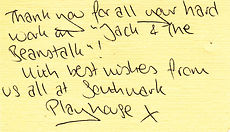 Thank you for all your hard
work on "Jack & The
Beanstalk"!
With best wishes from
us all at Southwark
Playhouse x